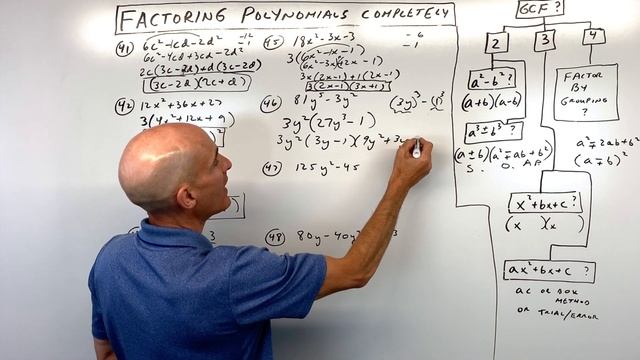 FACTORING POLYNOMIALS COMPLETELY
41) 6c² - cd - 2d² -12 -1
6c² - 4cd + 3cd - 2d²
2c(3c-2d)+d(3c-2d)
(3c-2d)(2c+d)
42) 12x² + 36x + 27
3(4x² + 12x + 9)
45) 18x² - 3x - 3 -6 -1
3(6x² - 1x - 1)
3x(2x-1)+1(2x-1)
3(2x-1)(3x+1)
46) 81y⁵ - 3y² (3y)³ - (1)³
3y²(27y³ - 1)
3y²(3y-1)(9y²+3
47) 125y² - 45
48) 80y - 40y² 3
GCF?
2 3 4
a²-b²?
(a+b)(a-b)
a³±b³?
(a±b)(a²∓ab+b²)
S. O. AP
FACTOR
BY
GROUPING?
a²∓2ab+b²
(a∓b)²
x²+bx+c?
(x )(x )
ax²+bx+c?
AC OR BOX
METHOD
OR TRIAL/ERROR